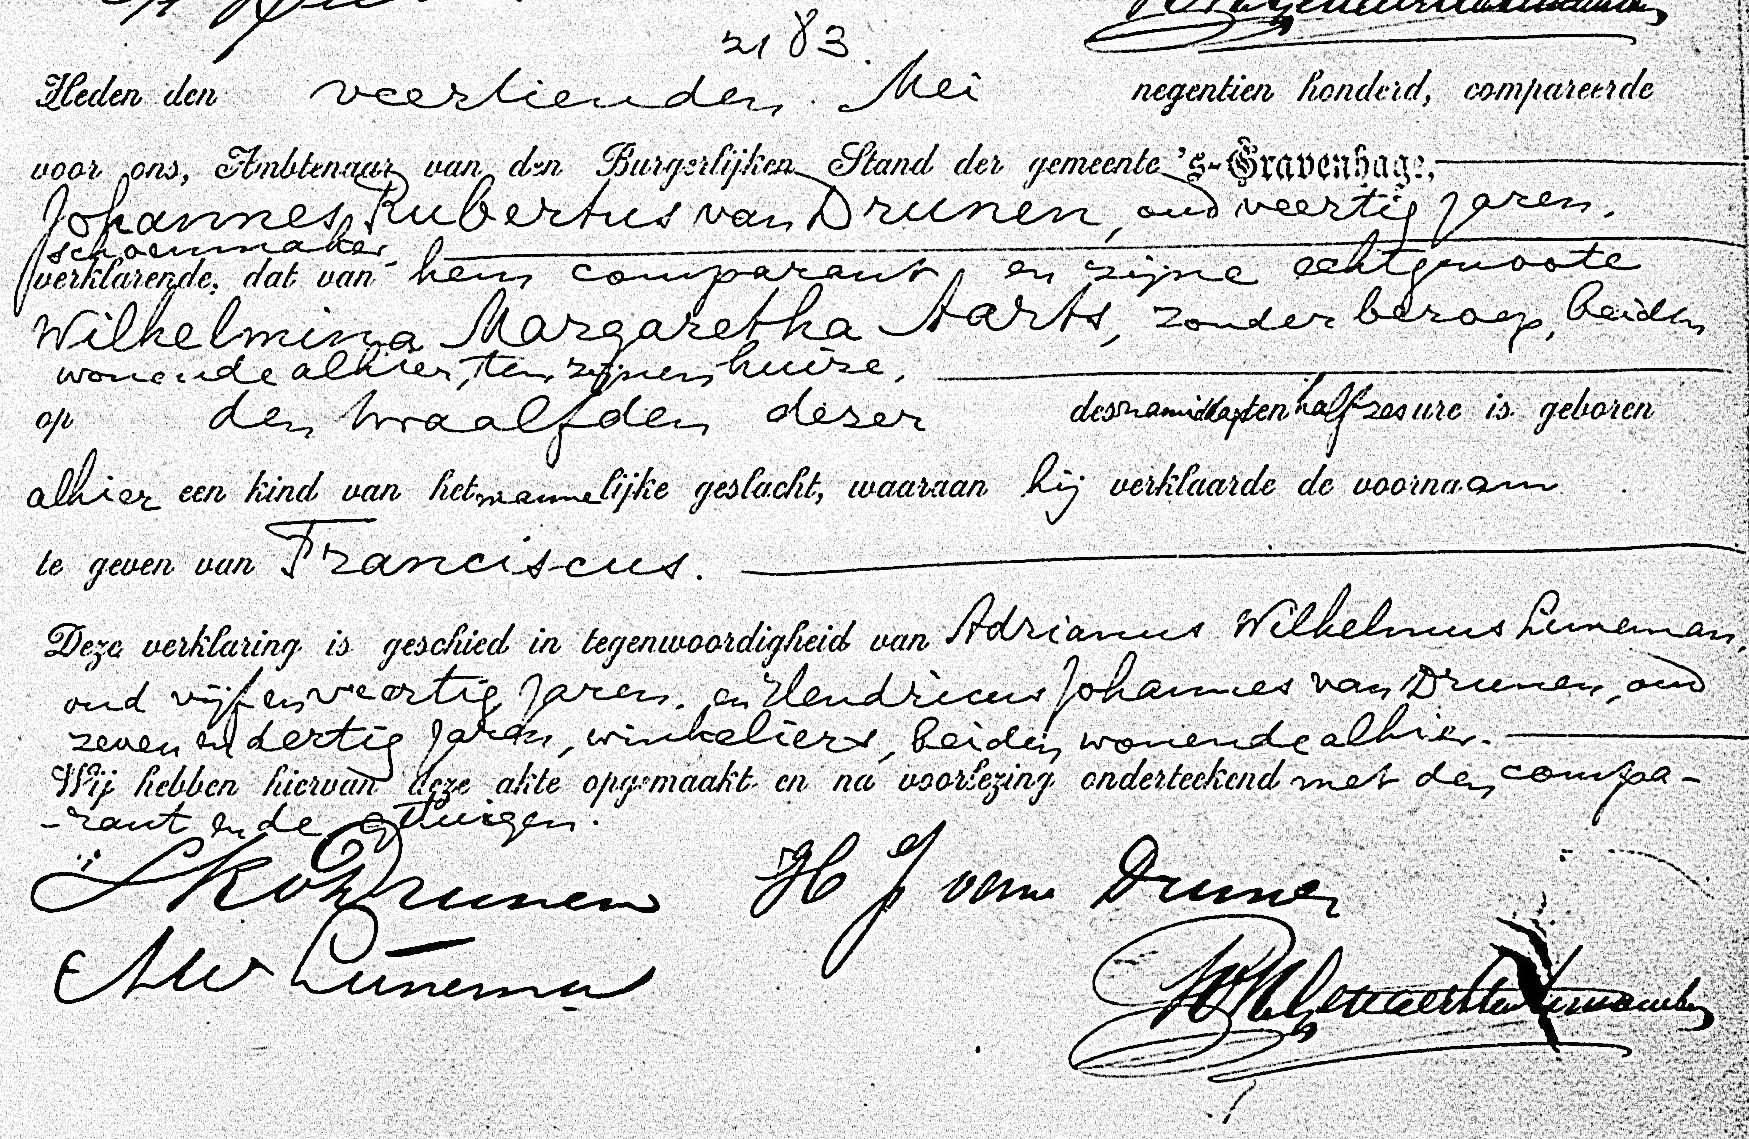 2183.
Heden den veertienden Mei negentien honderd, compareerde
voor ons, Ambtenaar van den Burgerlijken Stand der gemeente 's-Gravenhage,
Johannes Rubertus van Drunen, oud veertig jaren.
schoenmaker
verklarende, dat van hem comparant, en zijne echtgenoote
Wilhelmina Margaretha Aarts, zonder beroep, beiden
wonende alhier, ten zijnen huize,
op den twaalfden dezer des namiddags ten half zes ure is geboren
alhier een kind van het mannelijke geslacht, waaraan hij verklaarde de voornaam
te geven van Franciscus.
Deze verklaring is geschied in tegenwoordigheid van Adrianus Wilhelmus Luneman,
oud vijf en veertig jaren. en Hendricus Johannes van Drunen, oud
zeven en dertig jaren, winkeliers, beiden wonende alhier.
Wij hebben hiervan deze akte opgemaakt en na voorlezing onderteekend met den compa-
-rant en de getuigen.
Drunen H J van Drunen
AW Luneman